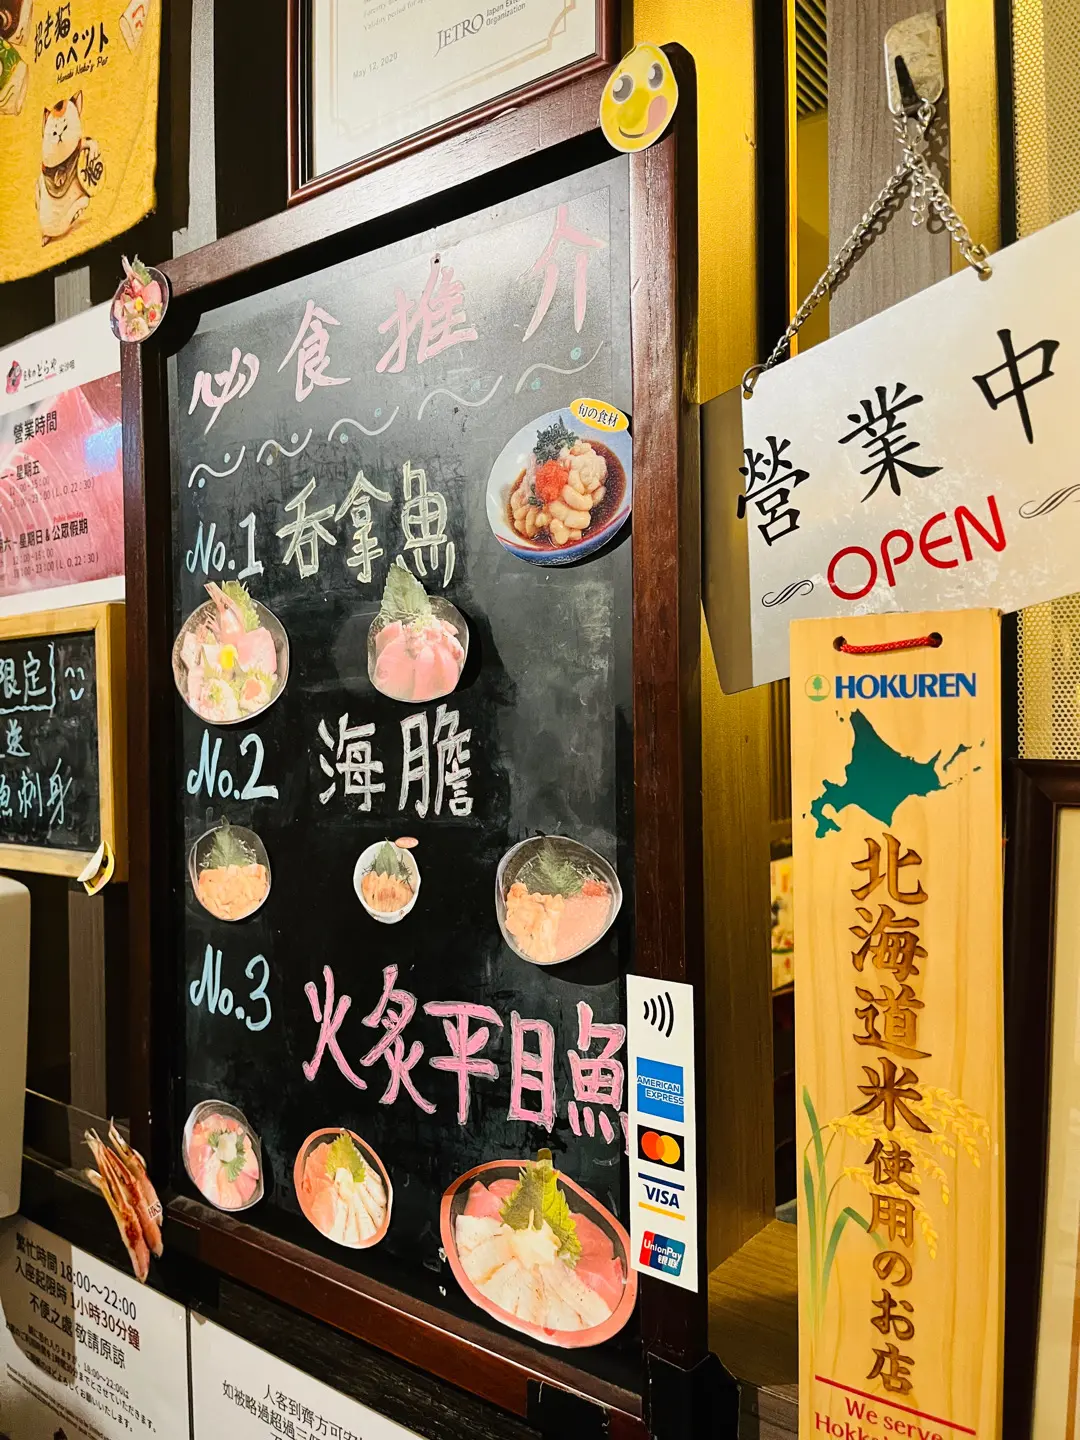 招き猫
のペット
Maneki Neko's Pet
JETRO
Japan External
Organization
May 12, 2020
必食推介
旬の食材
No.1 吞拿魚
No.2 海膽
No.3 火炙平目魚
とらや
營業時間
星期五
(L.O 22:30)
Public Holiday
星期日&公眾假期
(L.O. 22:30)
限定
送
魚刺身
營業中
OPEN
HOKUREN
北海道米使用のお店
We serve
AMERICAN EXPRESS
VISA
UnionPay
银联
繁忙時間 18:00～22:00
入座起限時 1小時30分鐘
不便之處 敬請原諒
人客到齊方可安
如被略過超過三